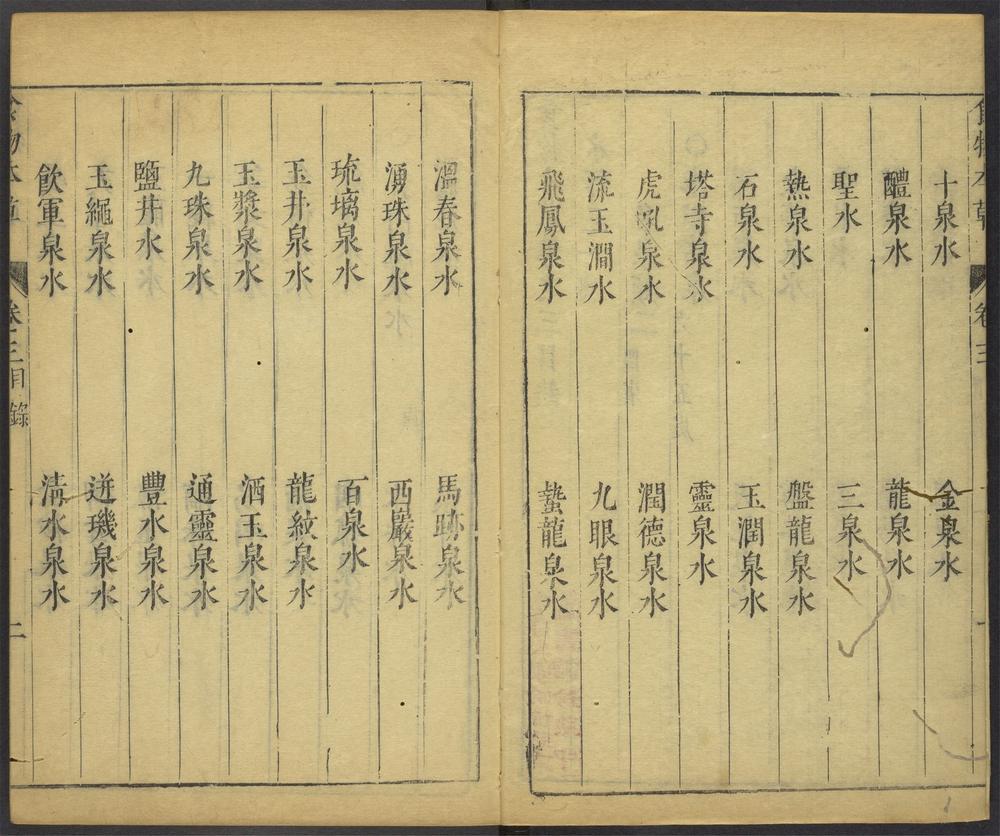 食物本草 卷三
十泉水 金泉水
醴泉水 龍泉水
聖水 三泉水
熱泉水 盤龍泉水
石泉水 玉潤泉水
塔寺泉水 靈泉水
虎泉水 潤德泉水
流玉澗水 九眼泉水
飛鳳泉水 蟄龍泉水
溫春泉水 馬跡泉水
湧珠泉水 西巖泉水
琉璃泉水 百泉水
玉井泉水 龍紋泉水
玉漿泉水 酒玉泉水
九珠泉水 通靈泉水
鹽井水 豐水泉水
玉繩泉水 迸璣泉水
飲軍泉水 清水泉水
食物本草 卷三目錄 二